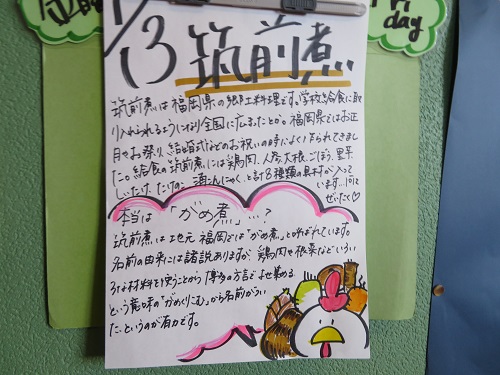 1/13 筑前煮
day
筑前煮は福岡県の郷土料理です。学校給食に取
り入れられるようになり全国に広まったとか。福岡県ではお正
月やお祭り、結婚式などのお祝いの時によく作られてきまし
た。給食の筑前煮には鶏肉、人参、大根、ごぼう、里芋、
しいたけ、たけのこ、こんにゃく、と計8種類の具材が入って
います…
ぜいたく♡
本当は「がめ煮」…?
筑前煮は地元福岡では「がめ煮」と呼ばれています。
名前の由来には諸説ありますが、鶏肉や根菜などいろい
ろな材料を使うことから博多の方言でよせ集める
という意味の"がめくりこむ"から名前がつい
た、というのが有力です。